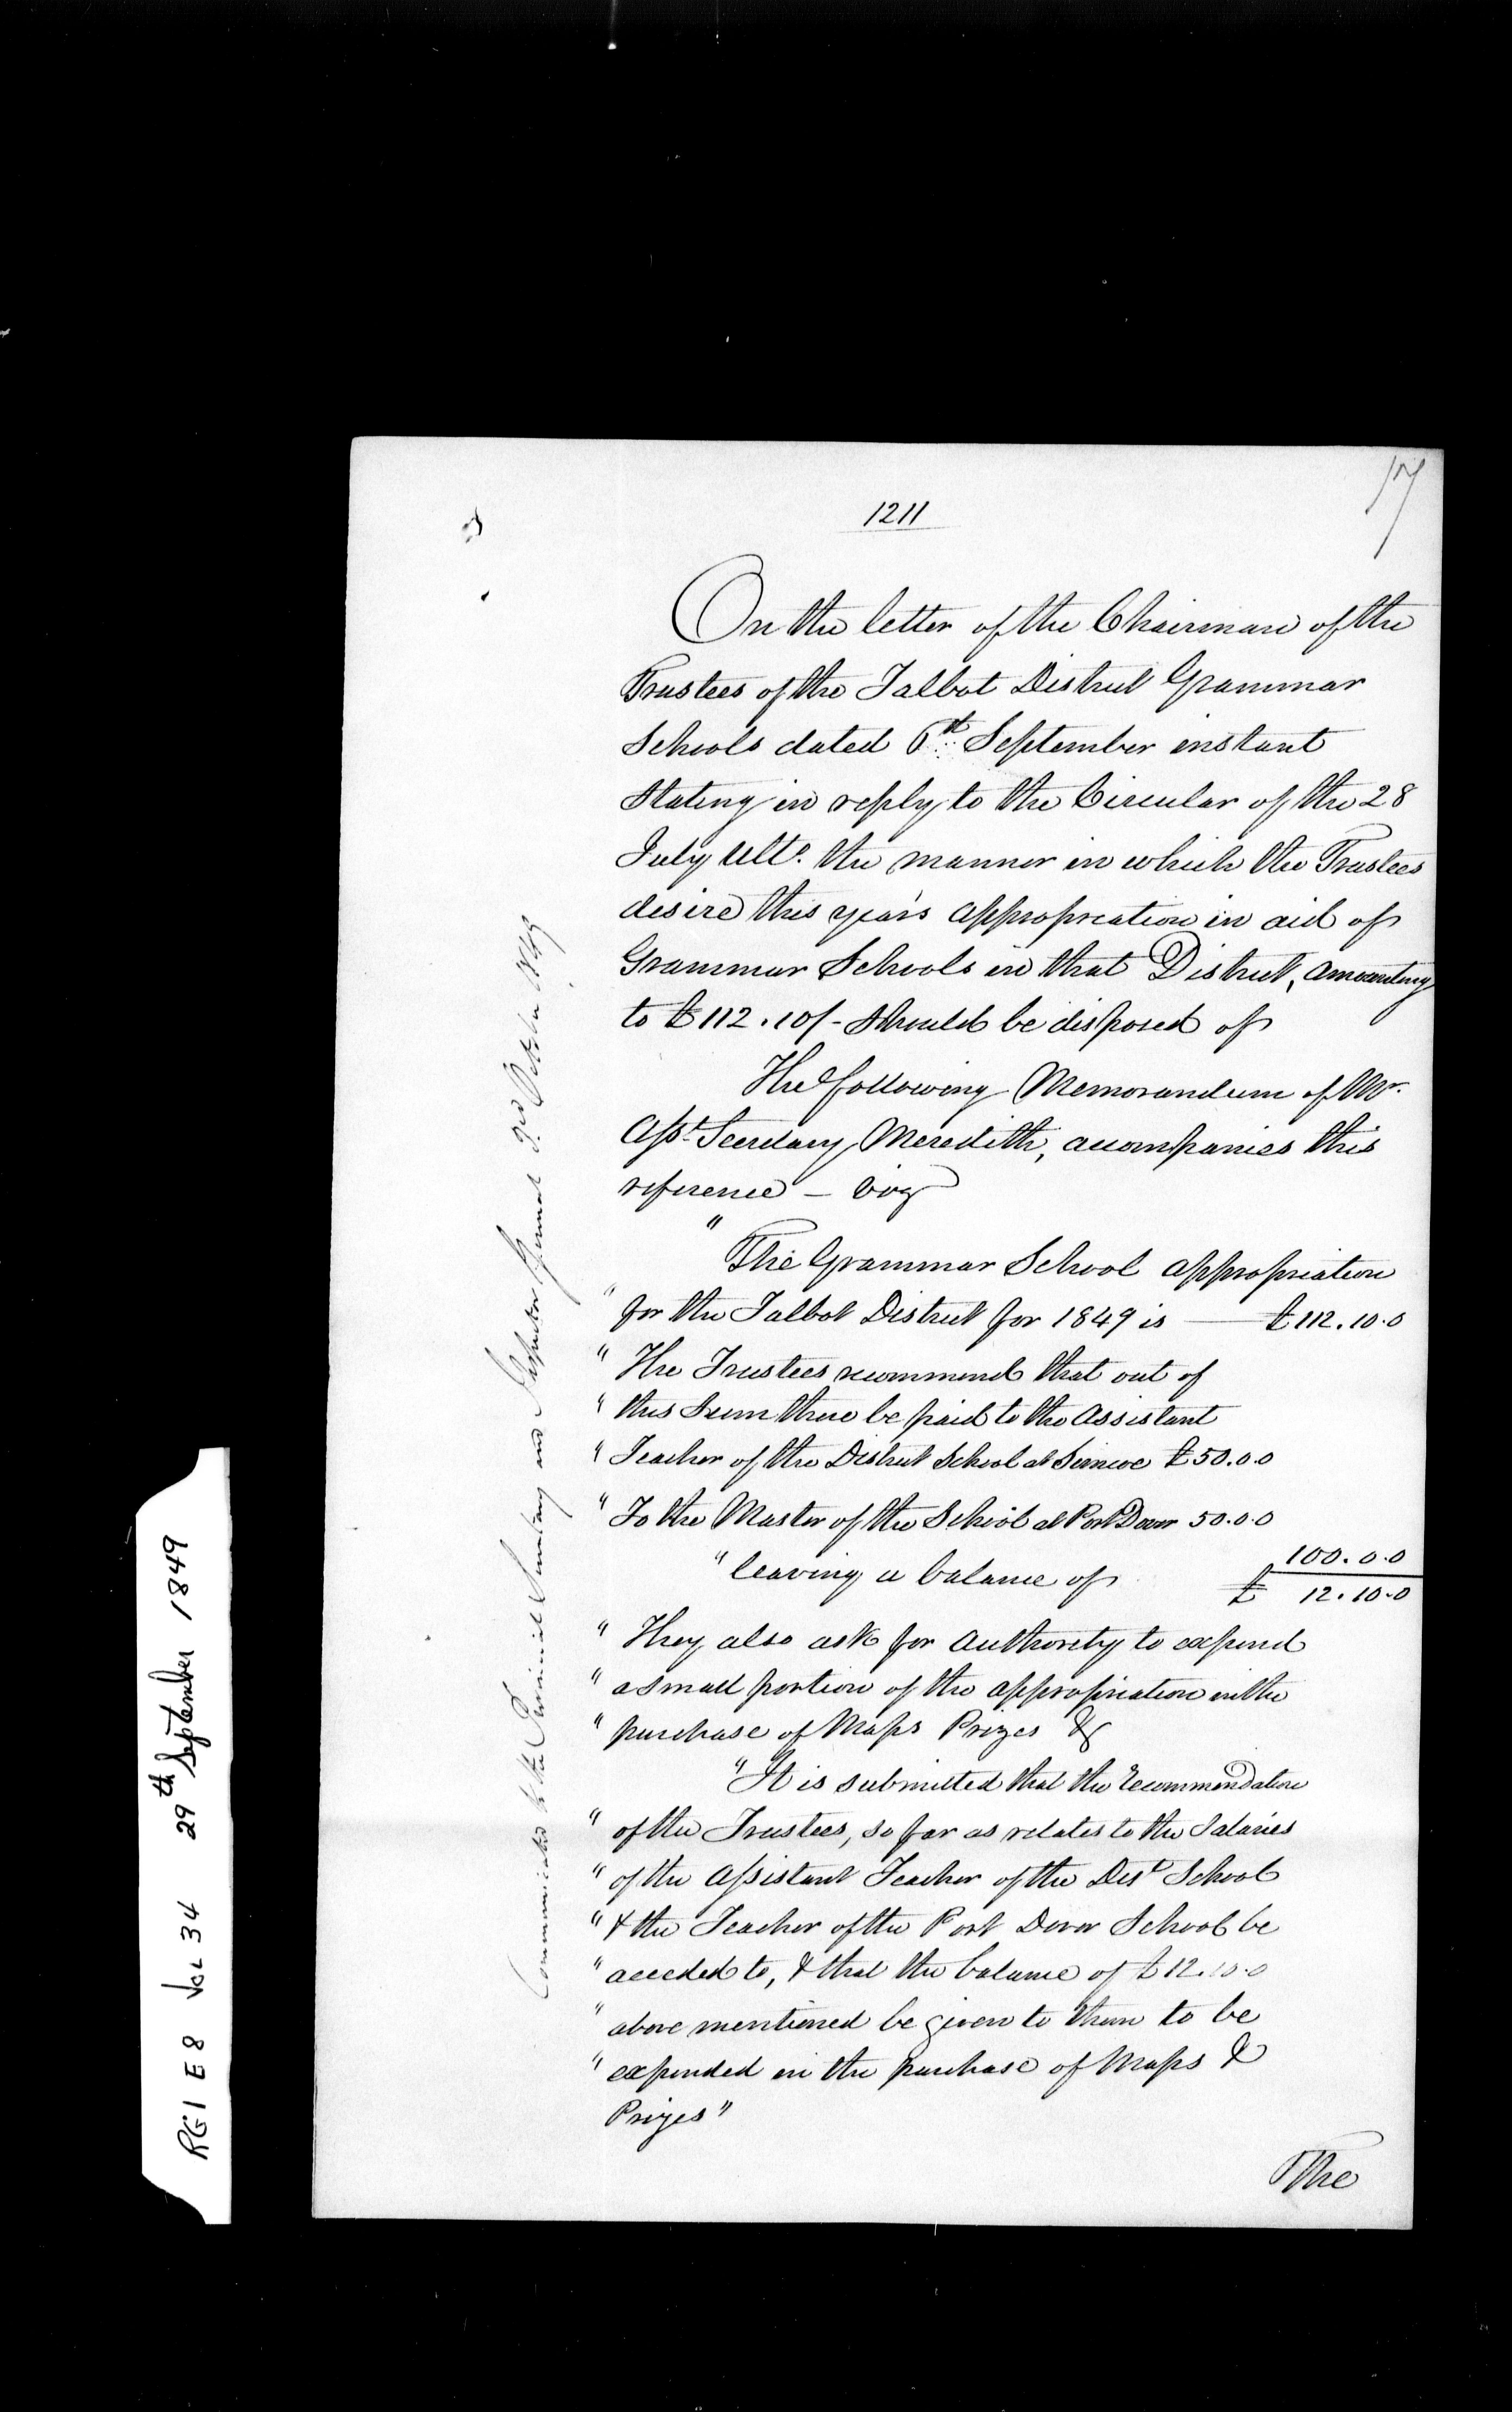 17
1211
On the letter of the Chairman of the
Trustees of the Talbot District Grammar
Schools dated 6th September instant
stating in reply to the Circular of the 28
July Ulto. the manner in which the Trustees
desire this year's appropriation in aid of
Grammar Schools in that District, amounting
to £112.10/- should be disposed of
The following Memorandum of Mr.
Asst. Secretary Meredith, accompanies this
reference – viz
" The Grammar School appropriation
" for the Talbot District for 1849 is — £112.10.0
" The Trustees recommend that out of
" this sum there be paid to the Assistant
" Teacher of the District School at Simcoe £50.0.0
" To the Master of the School at Port Dover 50.0.0
100.0.0
" leaving a balance of £ 12.10.0
" They also ask for authority to expend
" a small portion of the appropriation in the
" purchase of Maps Prizes &c
" It is submitted that the recommendation
" of the Trustees, so far as relates to the Salaries
" of the Assistant Teacher of the Dist School
" & the Teacher of the Port Dover School be
" acceded to, & that the balance of £12.10.0
" above mentioned be given to them to be
" expended in the purchase of Maps &
Prizes"
The
Communicated to the Provincial Secretary and Inspector General 3rd October 1849
RG1 E8 Vol 34 29th September 1849